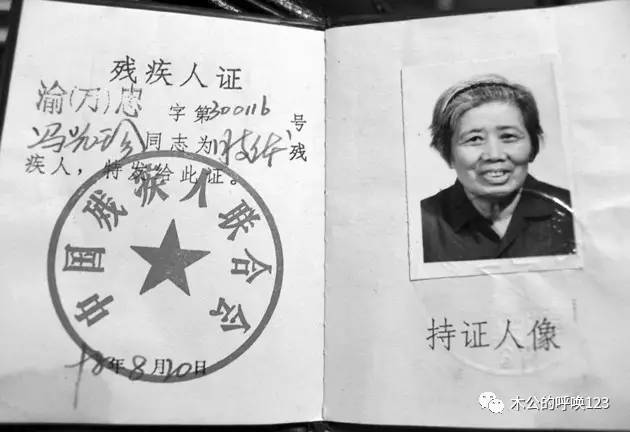 残疾人证
渝(万)忠字第30016号
冯兴珍同志为肢体残
疾人，特发给此证。
中国残疾人联合会
年8月20日
持证人像
木公的呼唤123